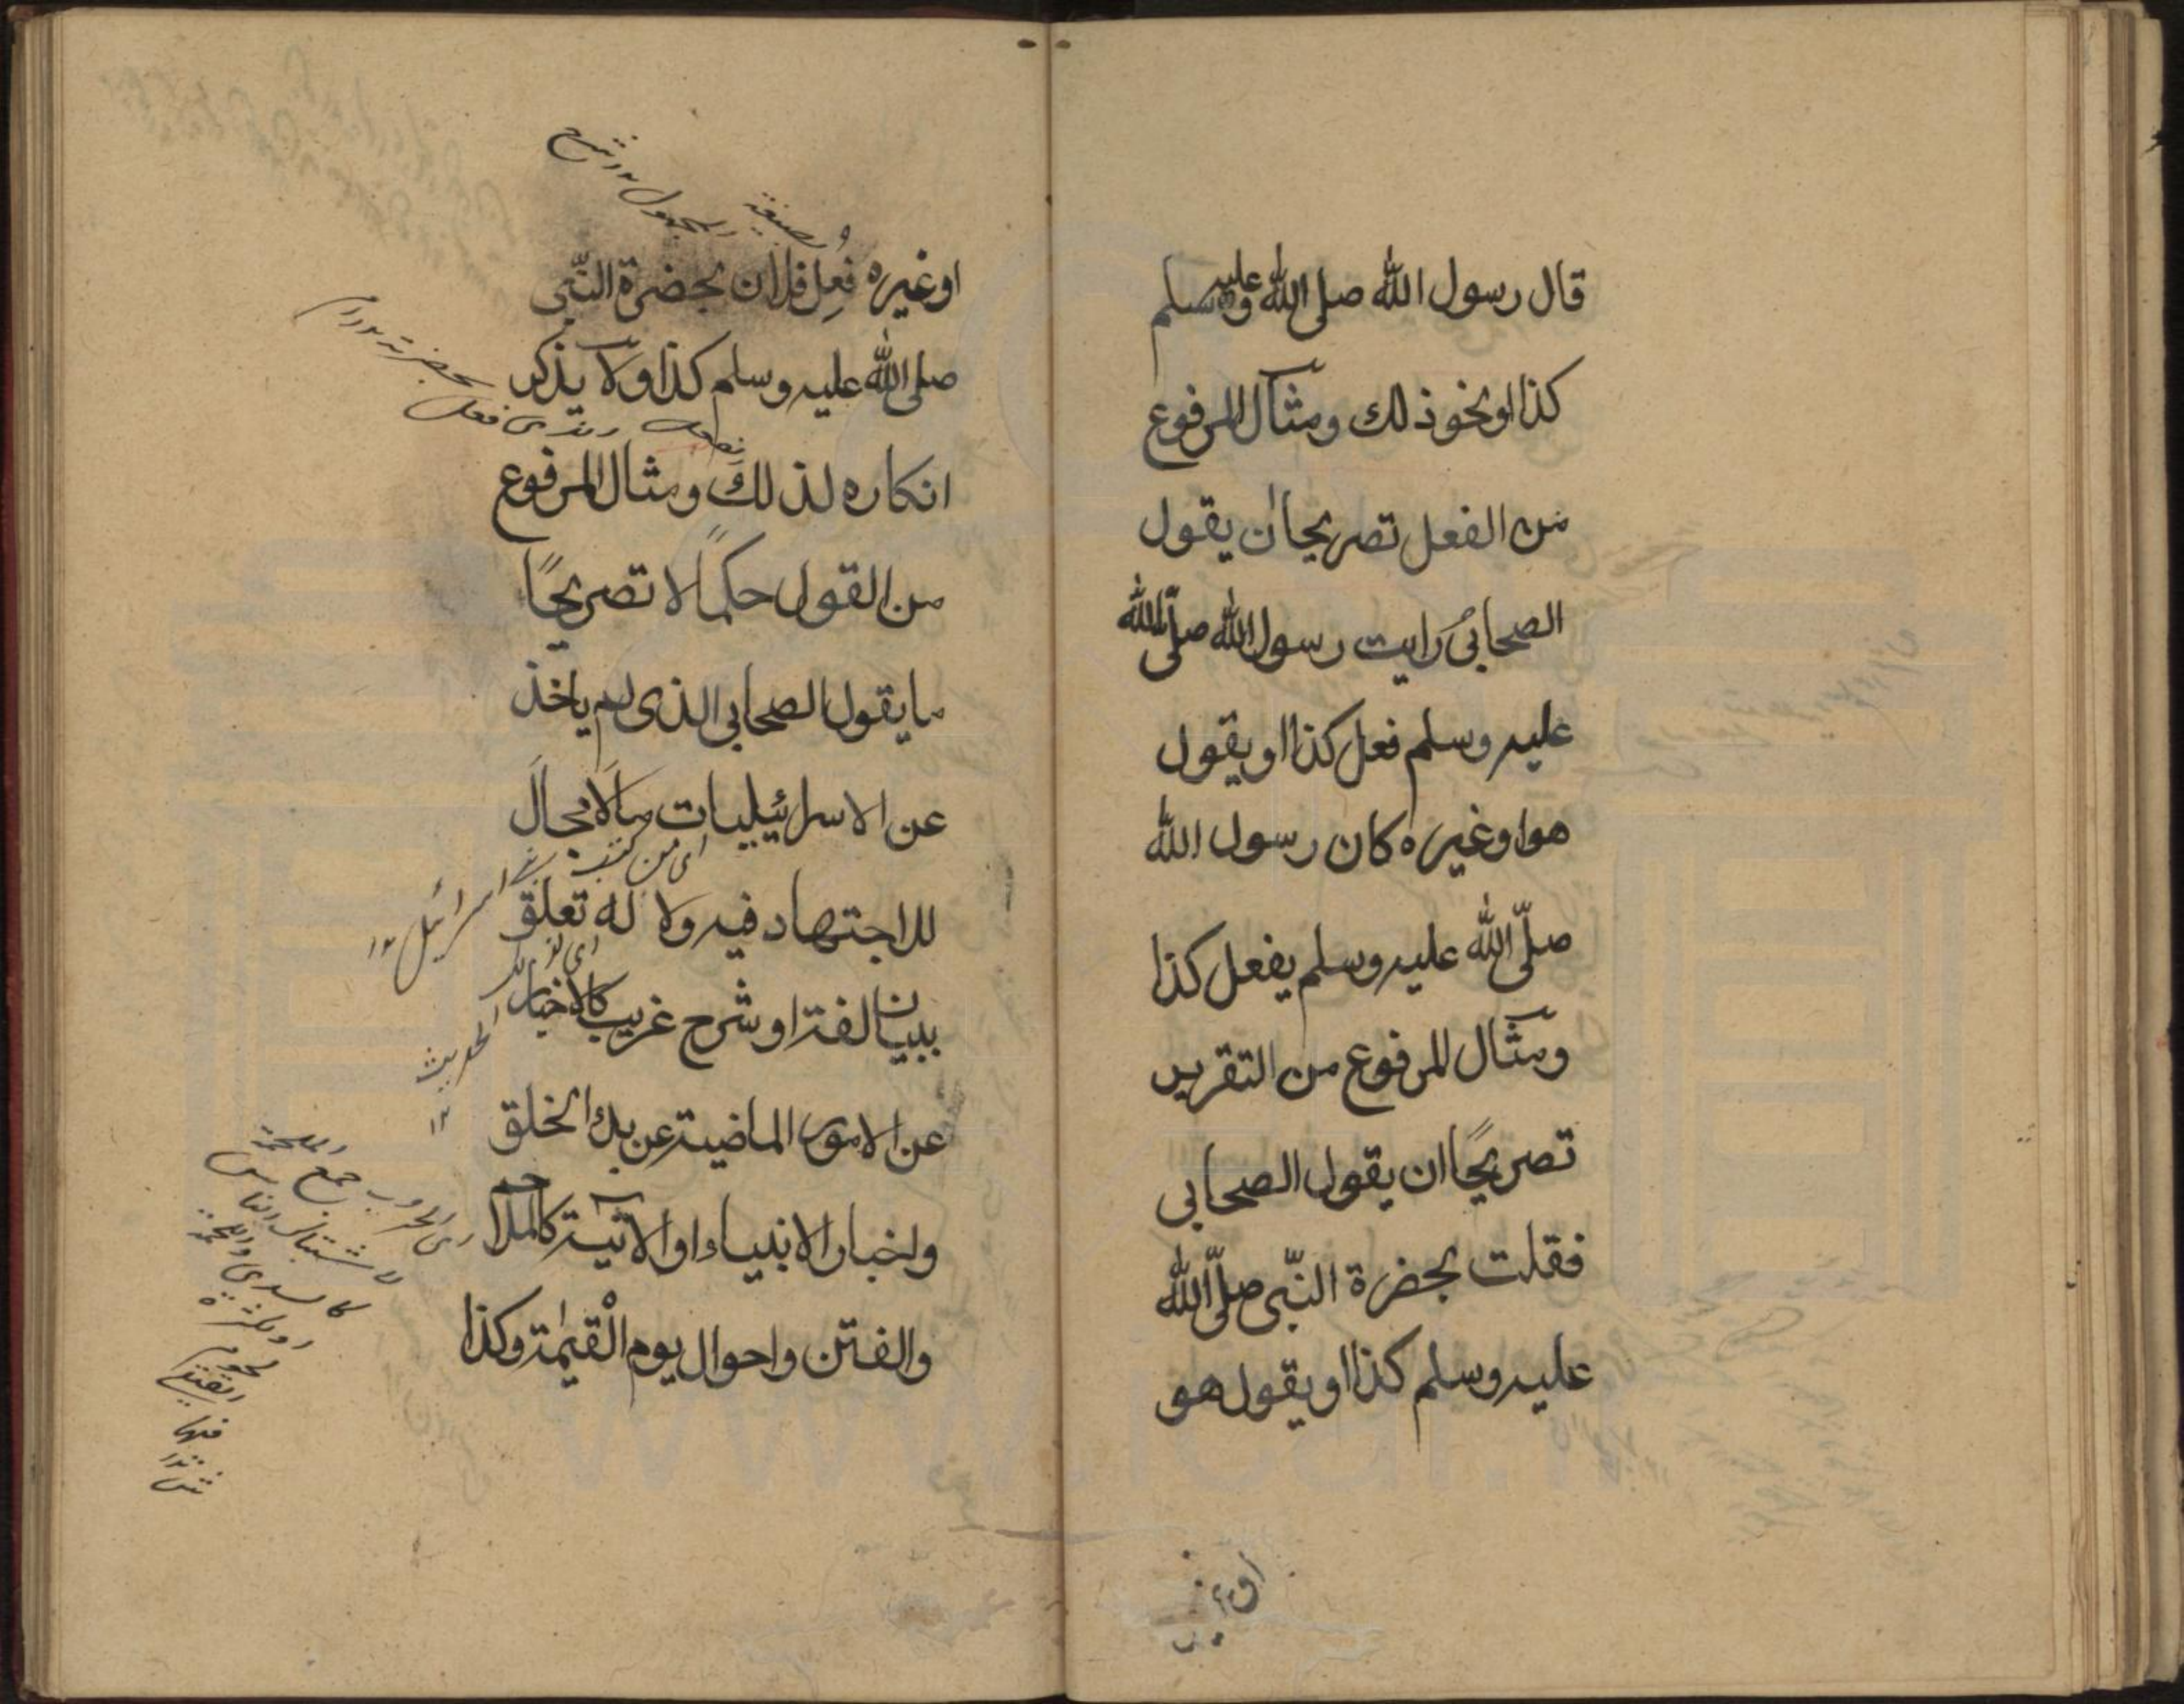 قال رسول الله صلى الله عليه وسلم
كذا او نحو ذلك ومثال المرفوع
من الفعل تصريحا ان يقول
الصحابي رايت رسول الله صلى الله
عليه وسلم فعل كذا او يقول
هو او غيره كان رسول الله
صلّى الله عليه وسلم يفعل كذا
ومثال المرفوع من التقرير
تصريحًا ان يقول الصحابي
فقلت بحضرة النّبي صلّى الله
عليه وسلم كذا او يقول هو
بصيغة
المجهول
او غيره فُعِل فلان بحضرة النّبي
صلى الله عليه وسلم كذا ولا يذكر
انكاره لذلك ومثال المرفوع
من القول حكمًا لا تصريحًا
ما يقول الصحابي الذى لم ياخذ
عن الاسرائيليات مالا مجال
اى من كتب
اسرائيل ١٢
للاجتهاد فيه ولا له تعلق
ببيان لغة او شرح غريب كالاخبار
الحديث
١٢
عن الامور الماضية عن بدء الخلق
واخبار الانبياء او الآتية كالملاحم
والفتن واحوال يوم القيٰمة وكذا
جمع الملحمة